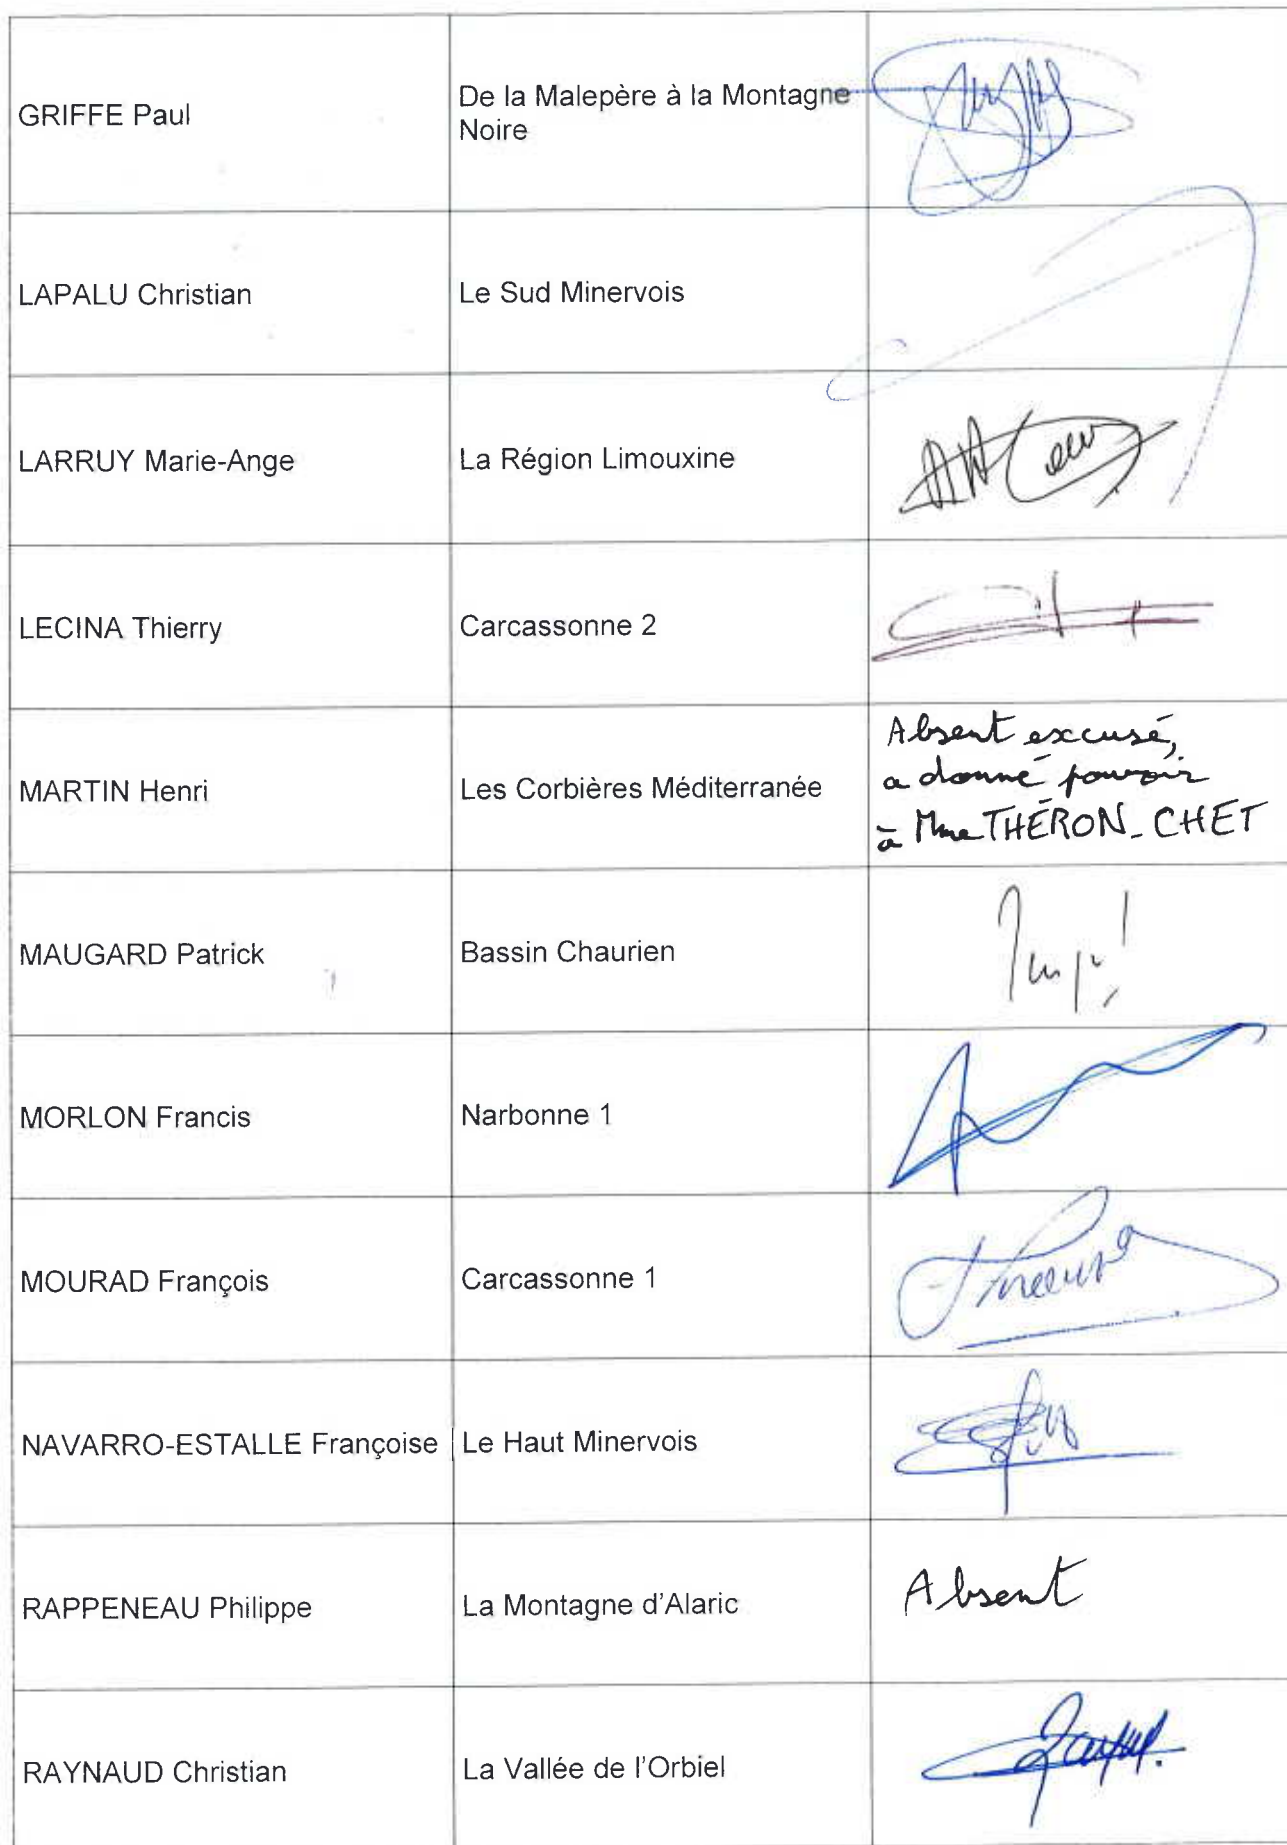 GRIFFE Paul
De la Malepère à la Montagne
Noire
LAPALU Christian
Le Sud Minervois
LARRUY Marie-Ange
La Région Limouxine
LECINA Thierry
Carcassonne 2
MARTIN Henri
Les Corbières Méditerranée
Absent excusé,
a donné pouvoir
à Mme THÉRON-CHET
MAUGARD Patrick
Bassin Chaurien
MORLON Francis
Narbonne 1
MOURAD François
Carcassonne 1
NAVARRO-ESTALLE Françoise
Le Haut Minervois
RAPPENEAU Philippe
La Montagne d'Alaric
Absent
RAYNAUD Christian
La Vallée de l'Orbiel